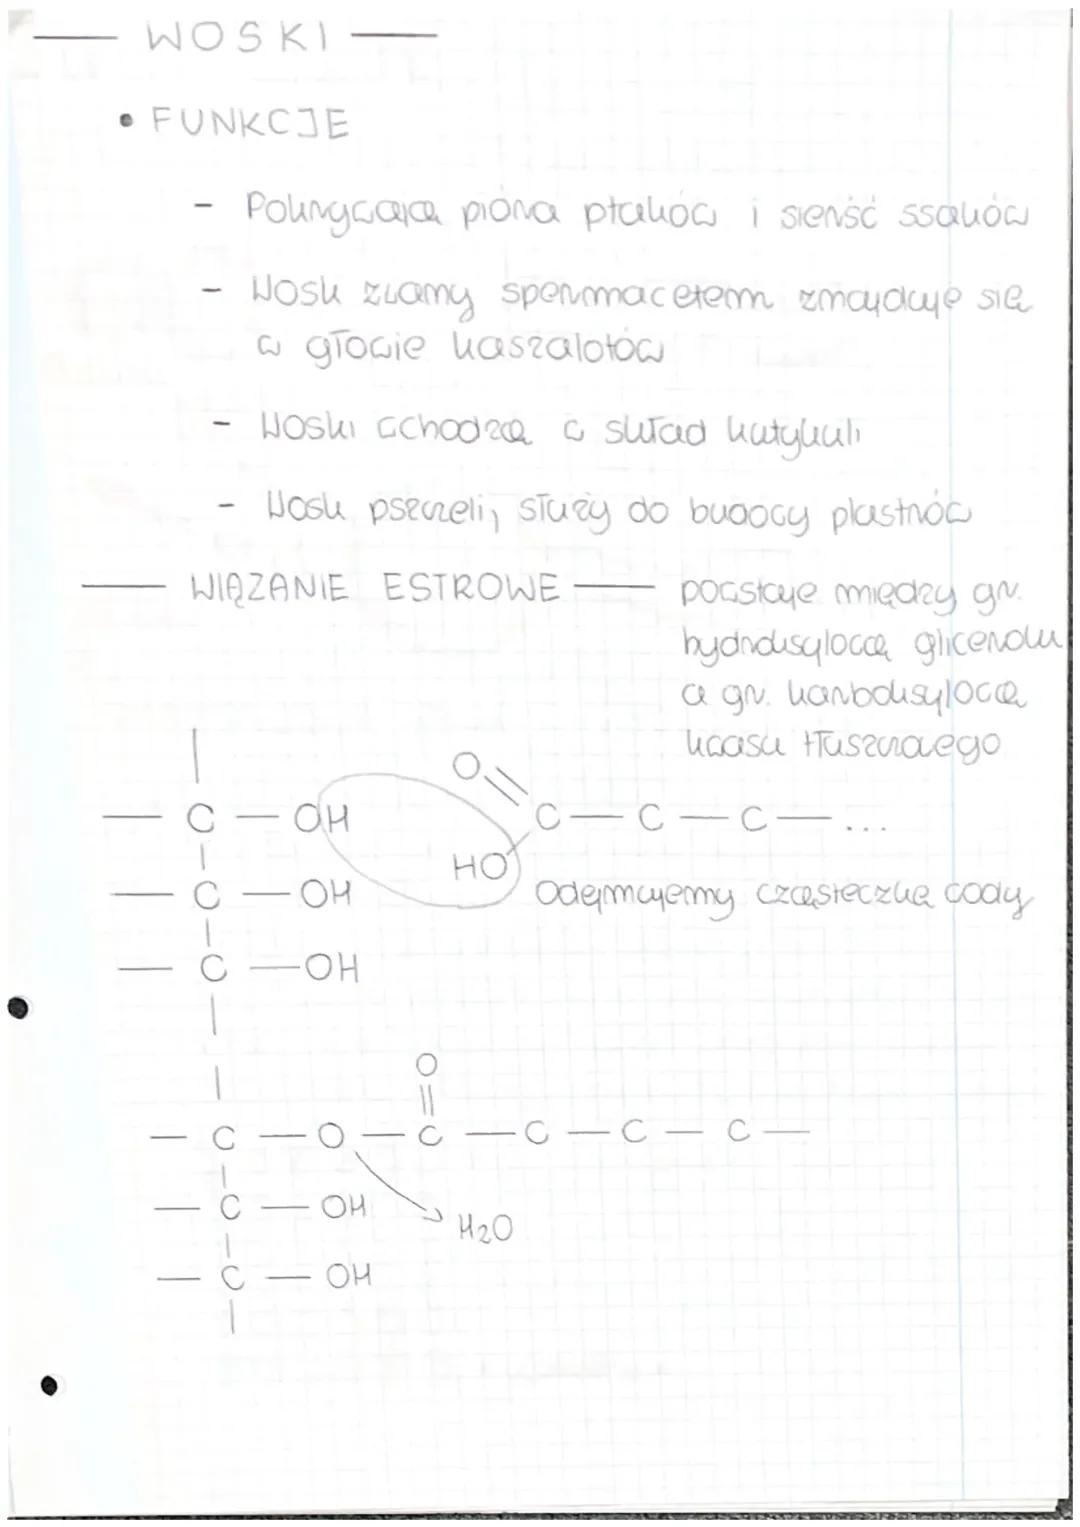 WOSKI
• FUNKCJE
- Pokrywają pióra ptaków i sierść ssaków
- Wosk zwany spermacetem znajduje się
w głowie kaszalotów
- Woski wchodzą w skład kutykuli
- Wosk pszczeli, służy do budowy plastrów
WIĄZANIE ESTROWE — powstaje między gr.
hydroksylową glicerolu
a gr. karboksylową
kwasu tłuszczowego
O
C — OH C — C — C — ...
HO
C — OH Odejmujemy cząsteczkę wody
C — OH
O
— C — O — C — C — C — C —
— C — OH
H2O
— C — OH